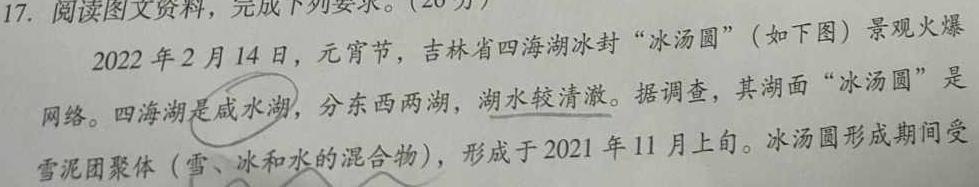 17. 阅读图文资料，完成下列要求。（20分）
2022年2月14日，元宵节，吉林省四海湖冰封“冰汤圆”（如下图）景观火爆
网络。四海湖是咸水湖，分东西两湖，湖水较清澈。据调查，其湖面“冰汤圆”是
雪泥团聚体（雪、冰和水的混合物），形成于2021年11月上旬。冰汤圆形成期间受